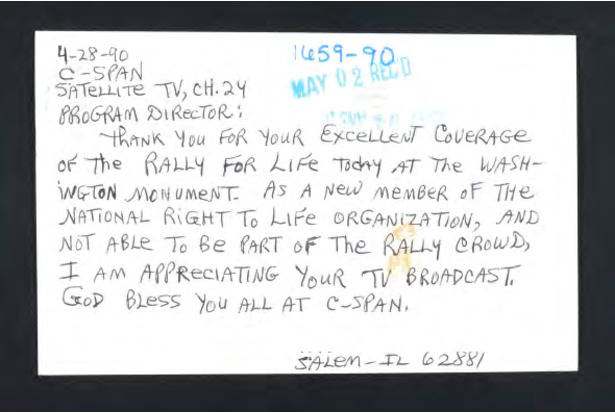 4-28-90
1659-90
C-SPAN
MAY 02 REC'D
SATELLITE TV, CH. 24
PROGRAM DIRECTOR:
THANK YOU FOR YOUR EXCELLENT COVERAGE
OF THE RALLY FOR LIFE TODAY AT THE WASH-
INGTON MONUMENT. AS A NEW MEMBER OF THE
NATIONAL RIGHT TO LIFE ORGANIZATION, AND
NOT ABLE TO BE PART OF THE RALLY CROWD,
I AM APPRECIATING YOUR TV BROADCAST.
GOD BLESS YOU ALL AT C-SPAN.
SALEM-IL 62881